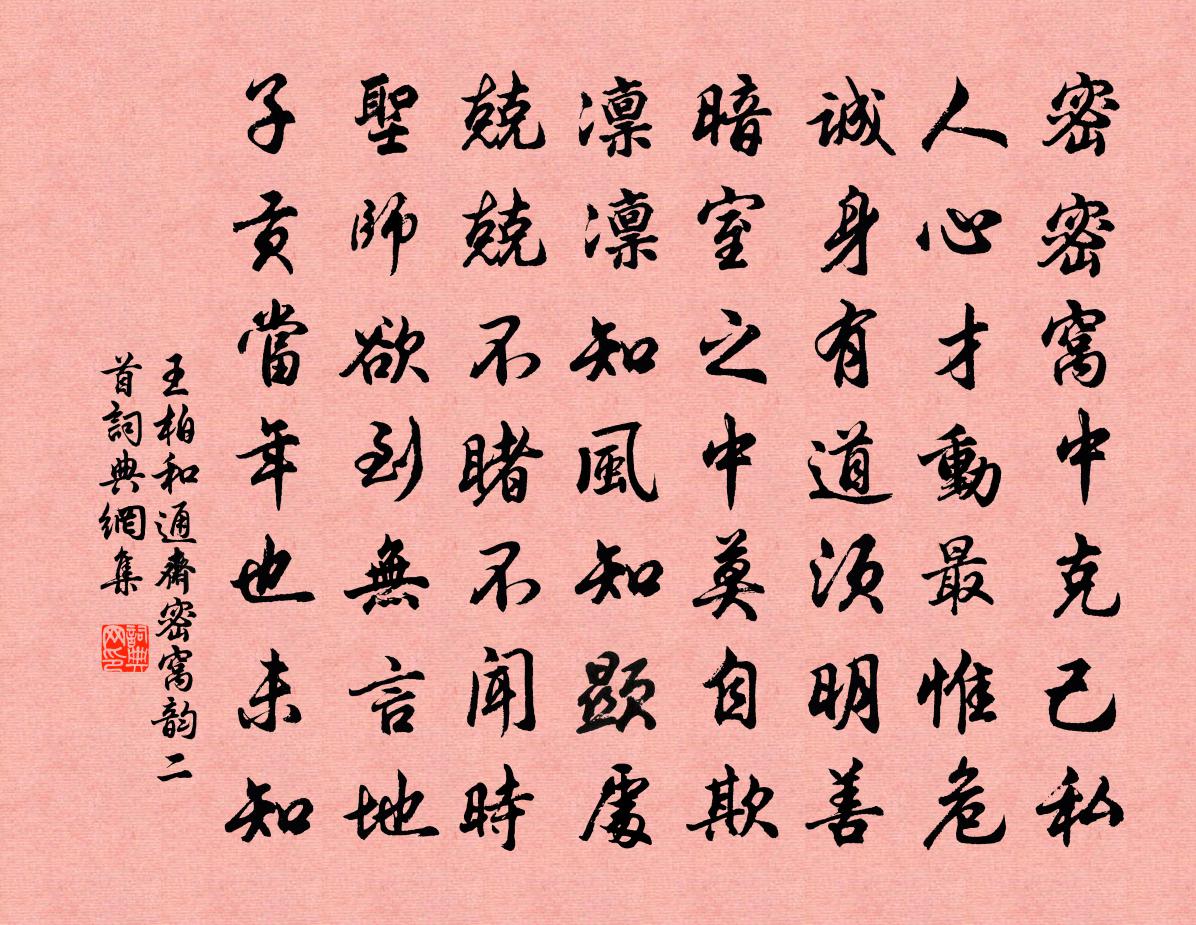 密密窩中克己私
人心才動最惟危
誠身有道須明善
暗室之中莫自欺
凛凛知風知顯處
兢兢不睹不聞時
聖師欲到無言地
子貢當年也未知
王柏和通齋密窩韵二
首詞典網集
詞典网印